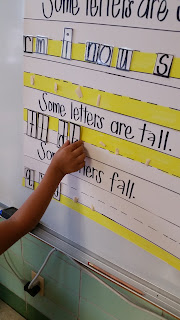 Some letters are
r m i n o u s
Some letters are tall.
Some letters fall.